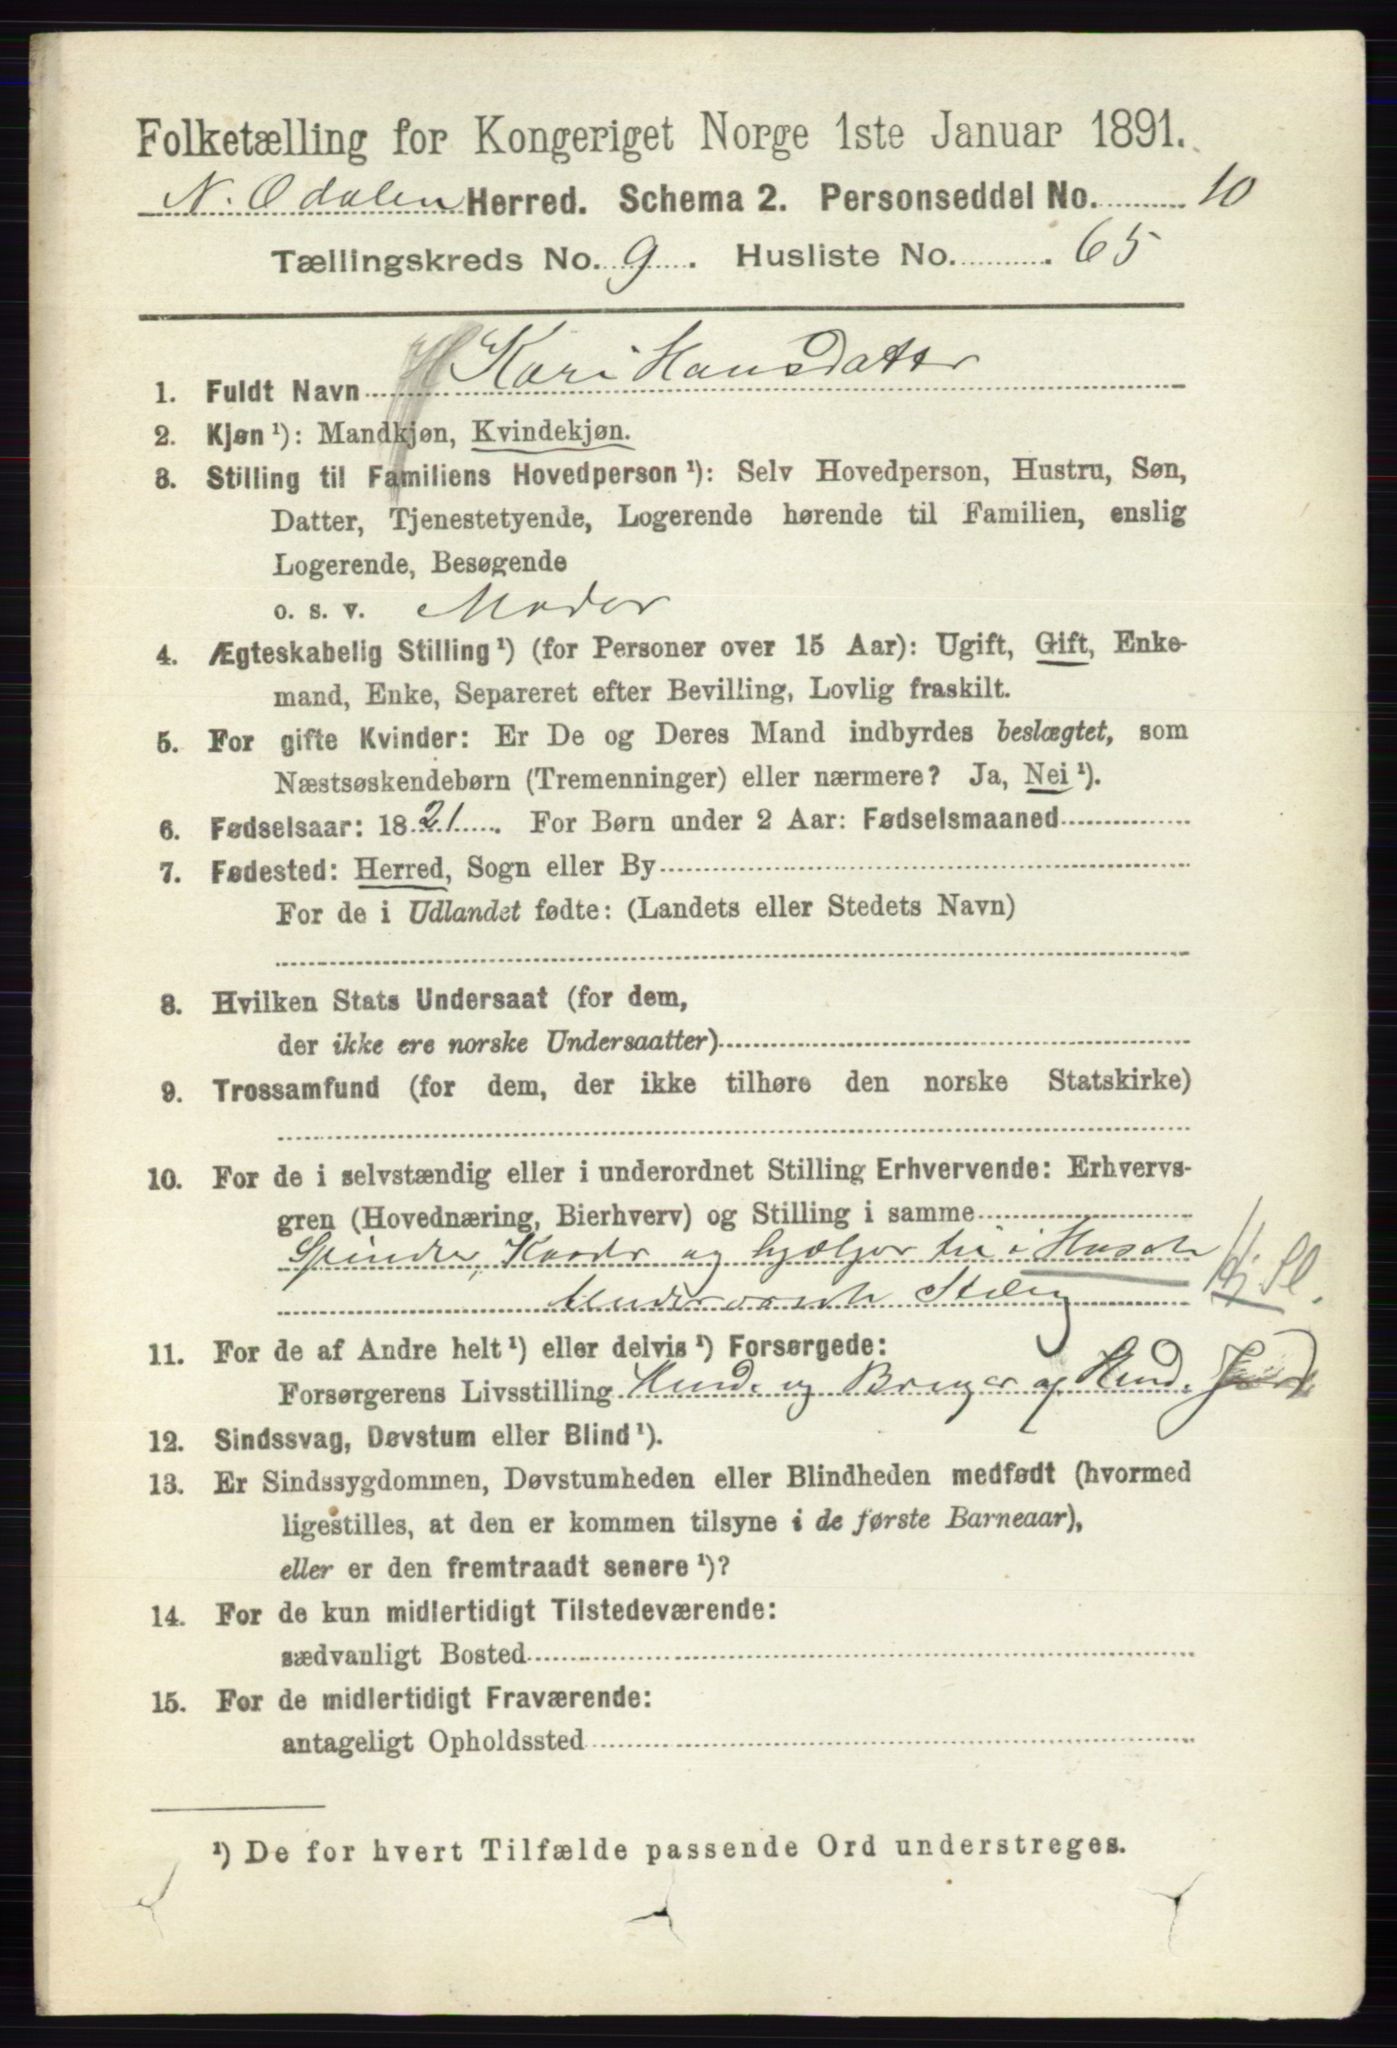 Folketælling for Kongeriget Norge 1ste Januar 1891.
N. Odalen Herred. Schema 2. Personseddel No. 10
Tællingskreds No. 9. Husliste No. 65
1. Fuldt Navn Kari Hansdatter
2. Kjøn ¹): Mandkjøn, Kvindekjøn.
3. Stilling til Familiens Hovedperson ¹): Selv Hovedperson, Hustru, Søn,
Datter, Tjenestetyende, Logerende hørende til Familien, enslig
Logerende, Besøgende
o. s. v. Moder
4. Ægteskabelig Stilling ¹) (for Personer over 15 Aar): Ugift, Gift, Enke-
mand, Enke, Separeret efter Bevilling, Lovlig fraskilt.
5. For gifte Kvinder: Er De og Deres Mand indbyrdes beslægtet, som
Næstsøskendebørn (Tremenninger) eller nærmere? Ja, Nei ¹).
6. Fødselsaar: 1821. For Børn under 2 Aar: Fødselsmaaned
7. Fødested: Herred, Sogn eller By
For de i Udlandet fødte: (Landets eller Stedets Navn)
8. Hvilken Stats Undersaat (for dem,
der ikke ere norske Undersaatter)
9. Trossamfund (for dem, der ikke tilhøre den norske Statskirke)
10. For de i selvstændig eller i underordnet Stilling Erhvervende: Erhvervs-
gren (Hovednæring, Bierhverv) og Stilling i samme
Spinder, Karder og hjælper til i Huset
Stilling Hj. Sl.
11. For de af Andre helt ¹) eller delvis ¹) Forsørgede:
Forsørgerens Livsstilling og Bruger af
12. Sindssvag, Døvstum eller Blind ¹).
13. Er Sindssygdommen, Døvstumheden eller Blindheden medfødt (hvormed
ligestilles, at den er kommen tilsyne i de første Barneaar),
eller er den fremtraadt senere ¹)?
14. For de kun midlertidigt Tilstedeværende:
sædvanligt Bosted
15. For de midlertidigt Fraværende:
antageligt Opholdssted
¹) De for hvert Tilfælde passende Ord understreges.